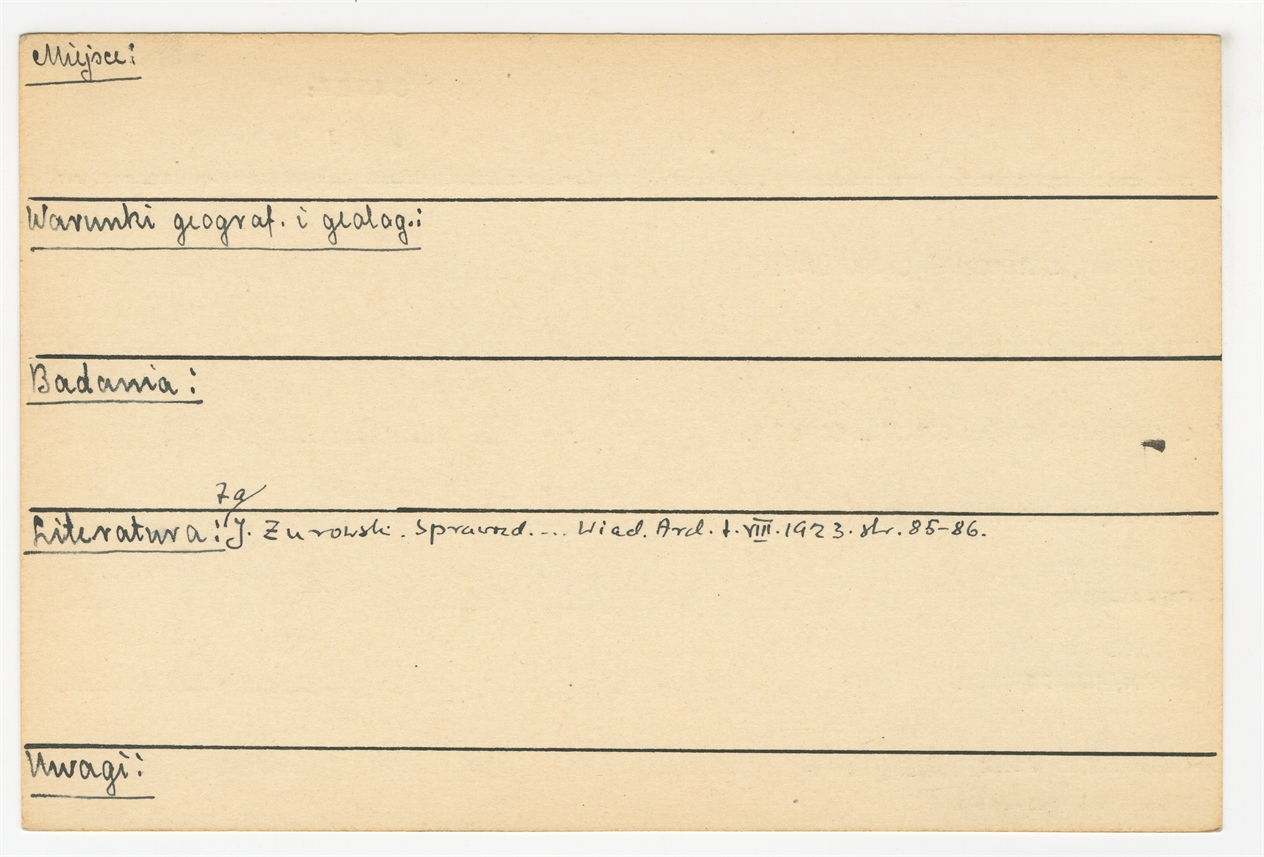 Miejsce:
Warunki geograf. i geolog.:
Badania:
Za
Literatura: J. Żurowski. Sprawozd.... Wiad. Arch. t. VIII. 1923. str. 85-86.
Uwagi: